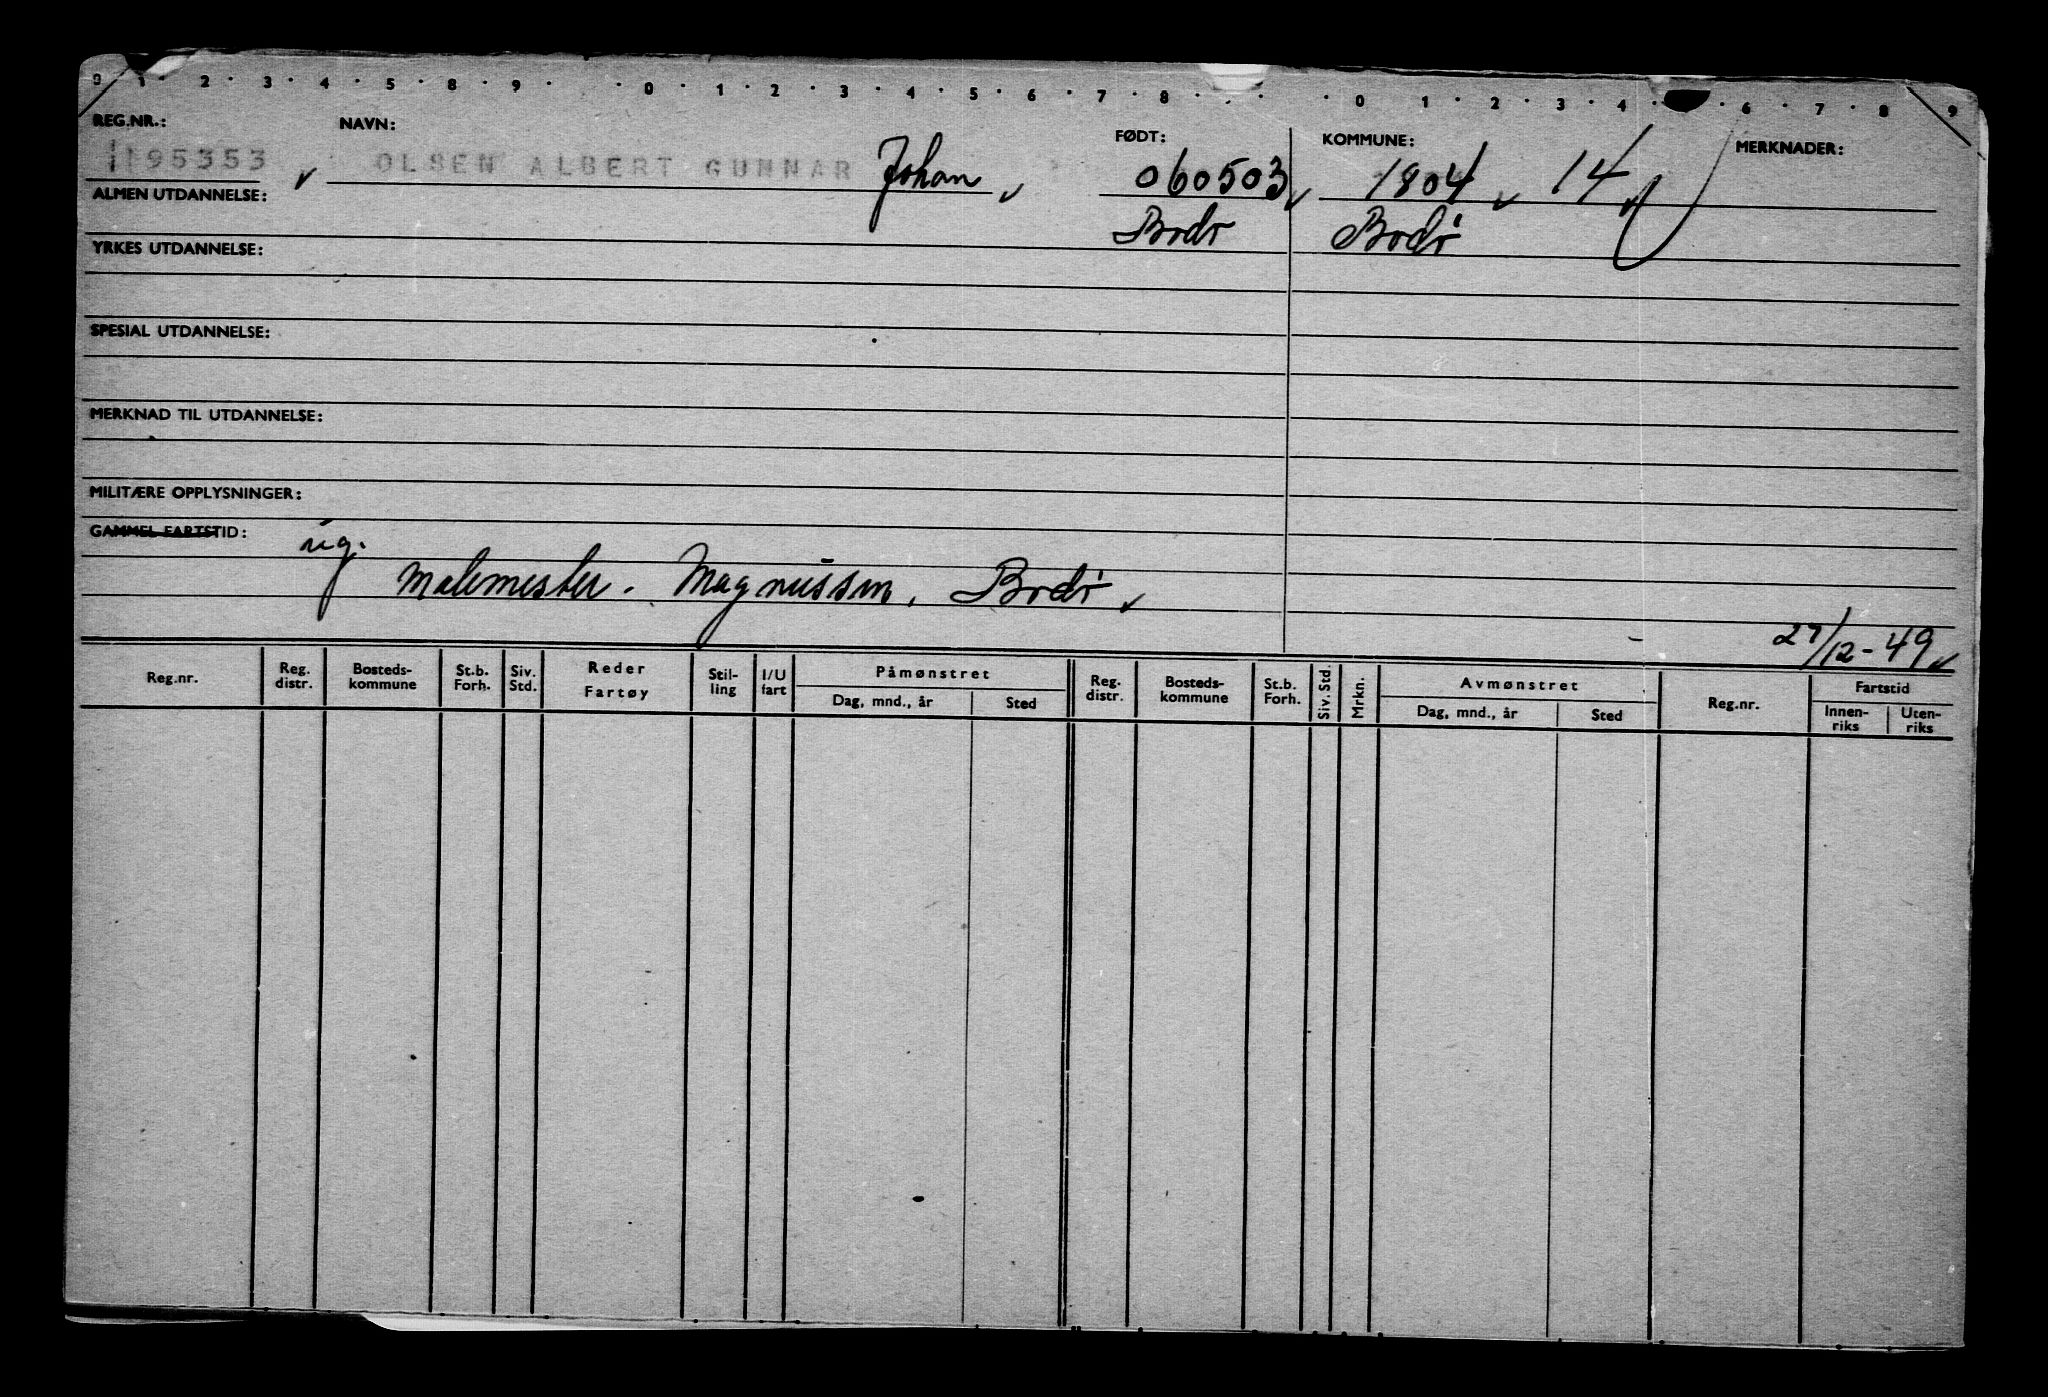 0 · 1 · 2 · 3 · 4 · 5 · 8 · 9 · · 0 · 1 · 2 · 3 · 4 · 5 · 6 · 7 · 8 · · · 0 · 1 · 2 · 3 · 4 · · 6 · 7 · 8 · 9
REG.NR.: NAVN: FØDT: KOMMUNE: MERKNADER:
195353 OLSEN ALBERT GUNNAR Johan 060503 1804 14
ALMEN UTDANNELSE: Bodø Bodø
YRKES UTDANNELSE:
SPESIAL UTDANNELSE:
MERKNAD TIL UTDANNELSE:
MILITÆRE OPPLYSNINGER:
GAMMEL FARTSTID:
Malemester. Magnussen, Bodø
27/12-49
Reg.nr. Reg. distr. Bosteds- kommune St.b. Forh. Siv. Std. Reder Fartøy Stil- ling I/U fart Påmønstret Dag, mnd., år Sted Reg. distr. Bosteds- kommune St.b. Forh. Siv. Std. Mrkn. Avmønstret Dag, mnd., år Sted Reg.nr. Fartstid Innen- riks Uten- riks